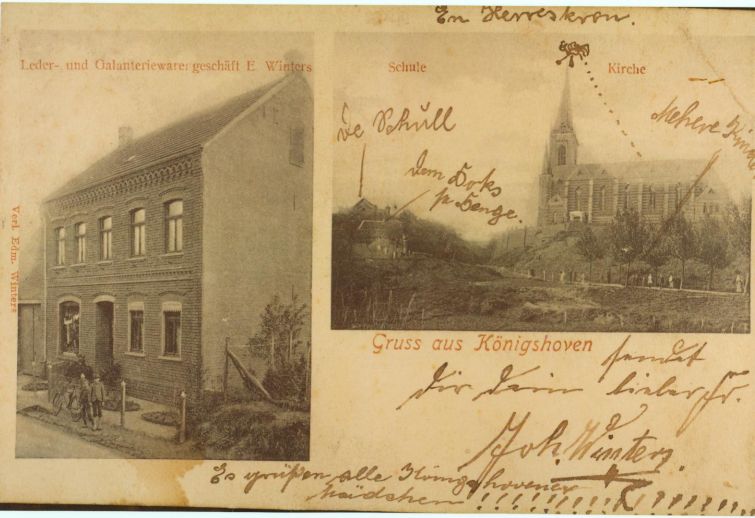 En Herreskron.
Leder- und Galanteriewarengeschäft E. Winters
Schule
Kirche
de Schull
Mehere
dem Doks
Verl. Edm. Winters
Gruss aus Königshoven
sendet
Dir Dein lieber Fr.
Joh. Winters.
Es grüßen alle Königshovener
Mädchen !!!!!!!!!!!!!!!